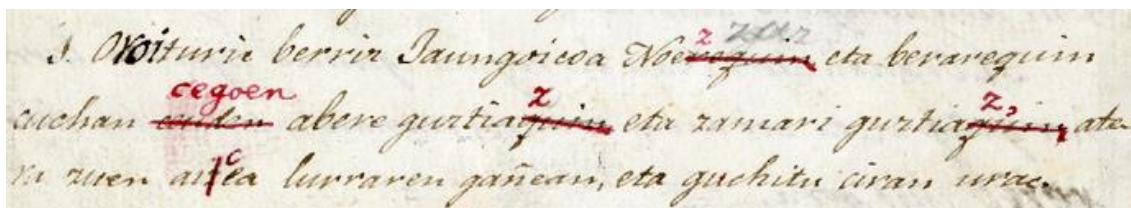 z
1. Oroituric berriz Jaungoicoa Noerequin eta berarequin
cegoen z z,
cuchan ceuden abere guztiaquin eta zamari guztiaquin, ate-
ra zuen aicea lurraren gañean, eta guchitu ciran urac.